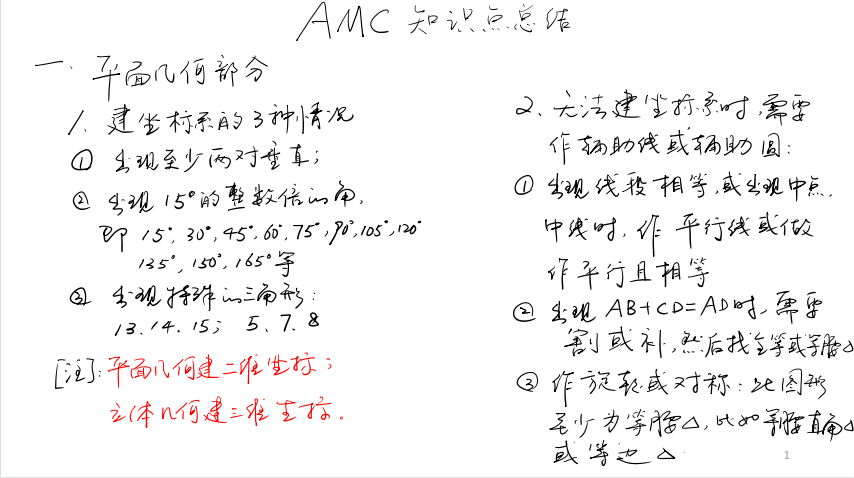 AMC 知识点总结
一. 平面几何部分
1. 建坐标系的3种情况
① 出现至少两对垂直;
② 出现15°的整数倍的角,
即 15°, 30°, 45°, 60°, 75°, 90°, 105°, 120°
135°, 150°, 165°等
③ 出现特殊的三角形:
13. 14. 15; 5、7、8
[注]: 平面几何建二维坐标;
立体几何建三维坐标.
2. 无法建坐标系时, 需要
作辅助线或辅助圆:
① 出现线段相等, 或出现中点,
中线时, 作 平行线或做
作平行且相等
② 出现 AB+CD=AD时, 需要
割或补, 然后找全等或等腰△
③ 作旋转或对称: 此图形
至少为等腰△, 比如等腰直角△
或等边△
1